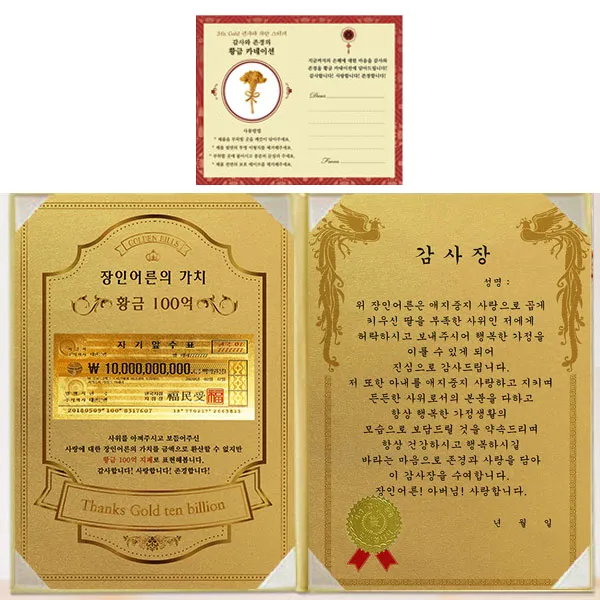 24k Gold 편지와 의한 스티커
감사와 존경의
황금 카네이션
사용방법
지금까지의 은혜에 대한 마음을 감사와
존경을 황금 카네이션에 담아드립니다!
감사합니다! 사랑합니다! 존경합니다!
Dear
From
GOLDEN BILLS
장인어른의 가치
황금 100억
자기앞수표
₩ 10,000,000,000.
福民受 福
사위를 아껴주시고 보듬어주신
사랑에 대한 장인어른의 가치를 금액으로 환산할 수 없지만
황금 100억 지폐로 표현해봅니다.
감사합니다! 사랑합니다! 존경합니다!
Thanks Gold ten billion
감 사 장
성명 :
위 장인어른은 애지중지 사랑으로 곱게
키우신 딸을 부족한 사위인 저에게
허락하시고 보내주시어 행복한 가정을
이룰 수 있게 되어
진심으로 감사드립니다.
저 또한 아내를 애지중지 사랑하고 지키며
든든한 사위로서의 본분을 다하고
항상 행복한 가정생활의
모습으로 보답드릴 것을 약속드리며
항상 건강하시고 행복하시길
바라는 마음으로 존경과 사랑을 담아
이 감사장을 수여합니다.
장인어른! 아버님! 사랑합니다.
년 월 일